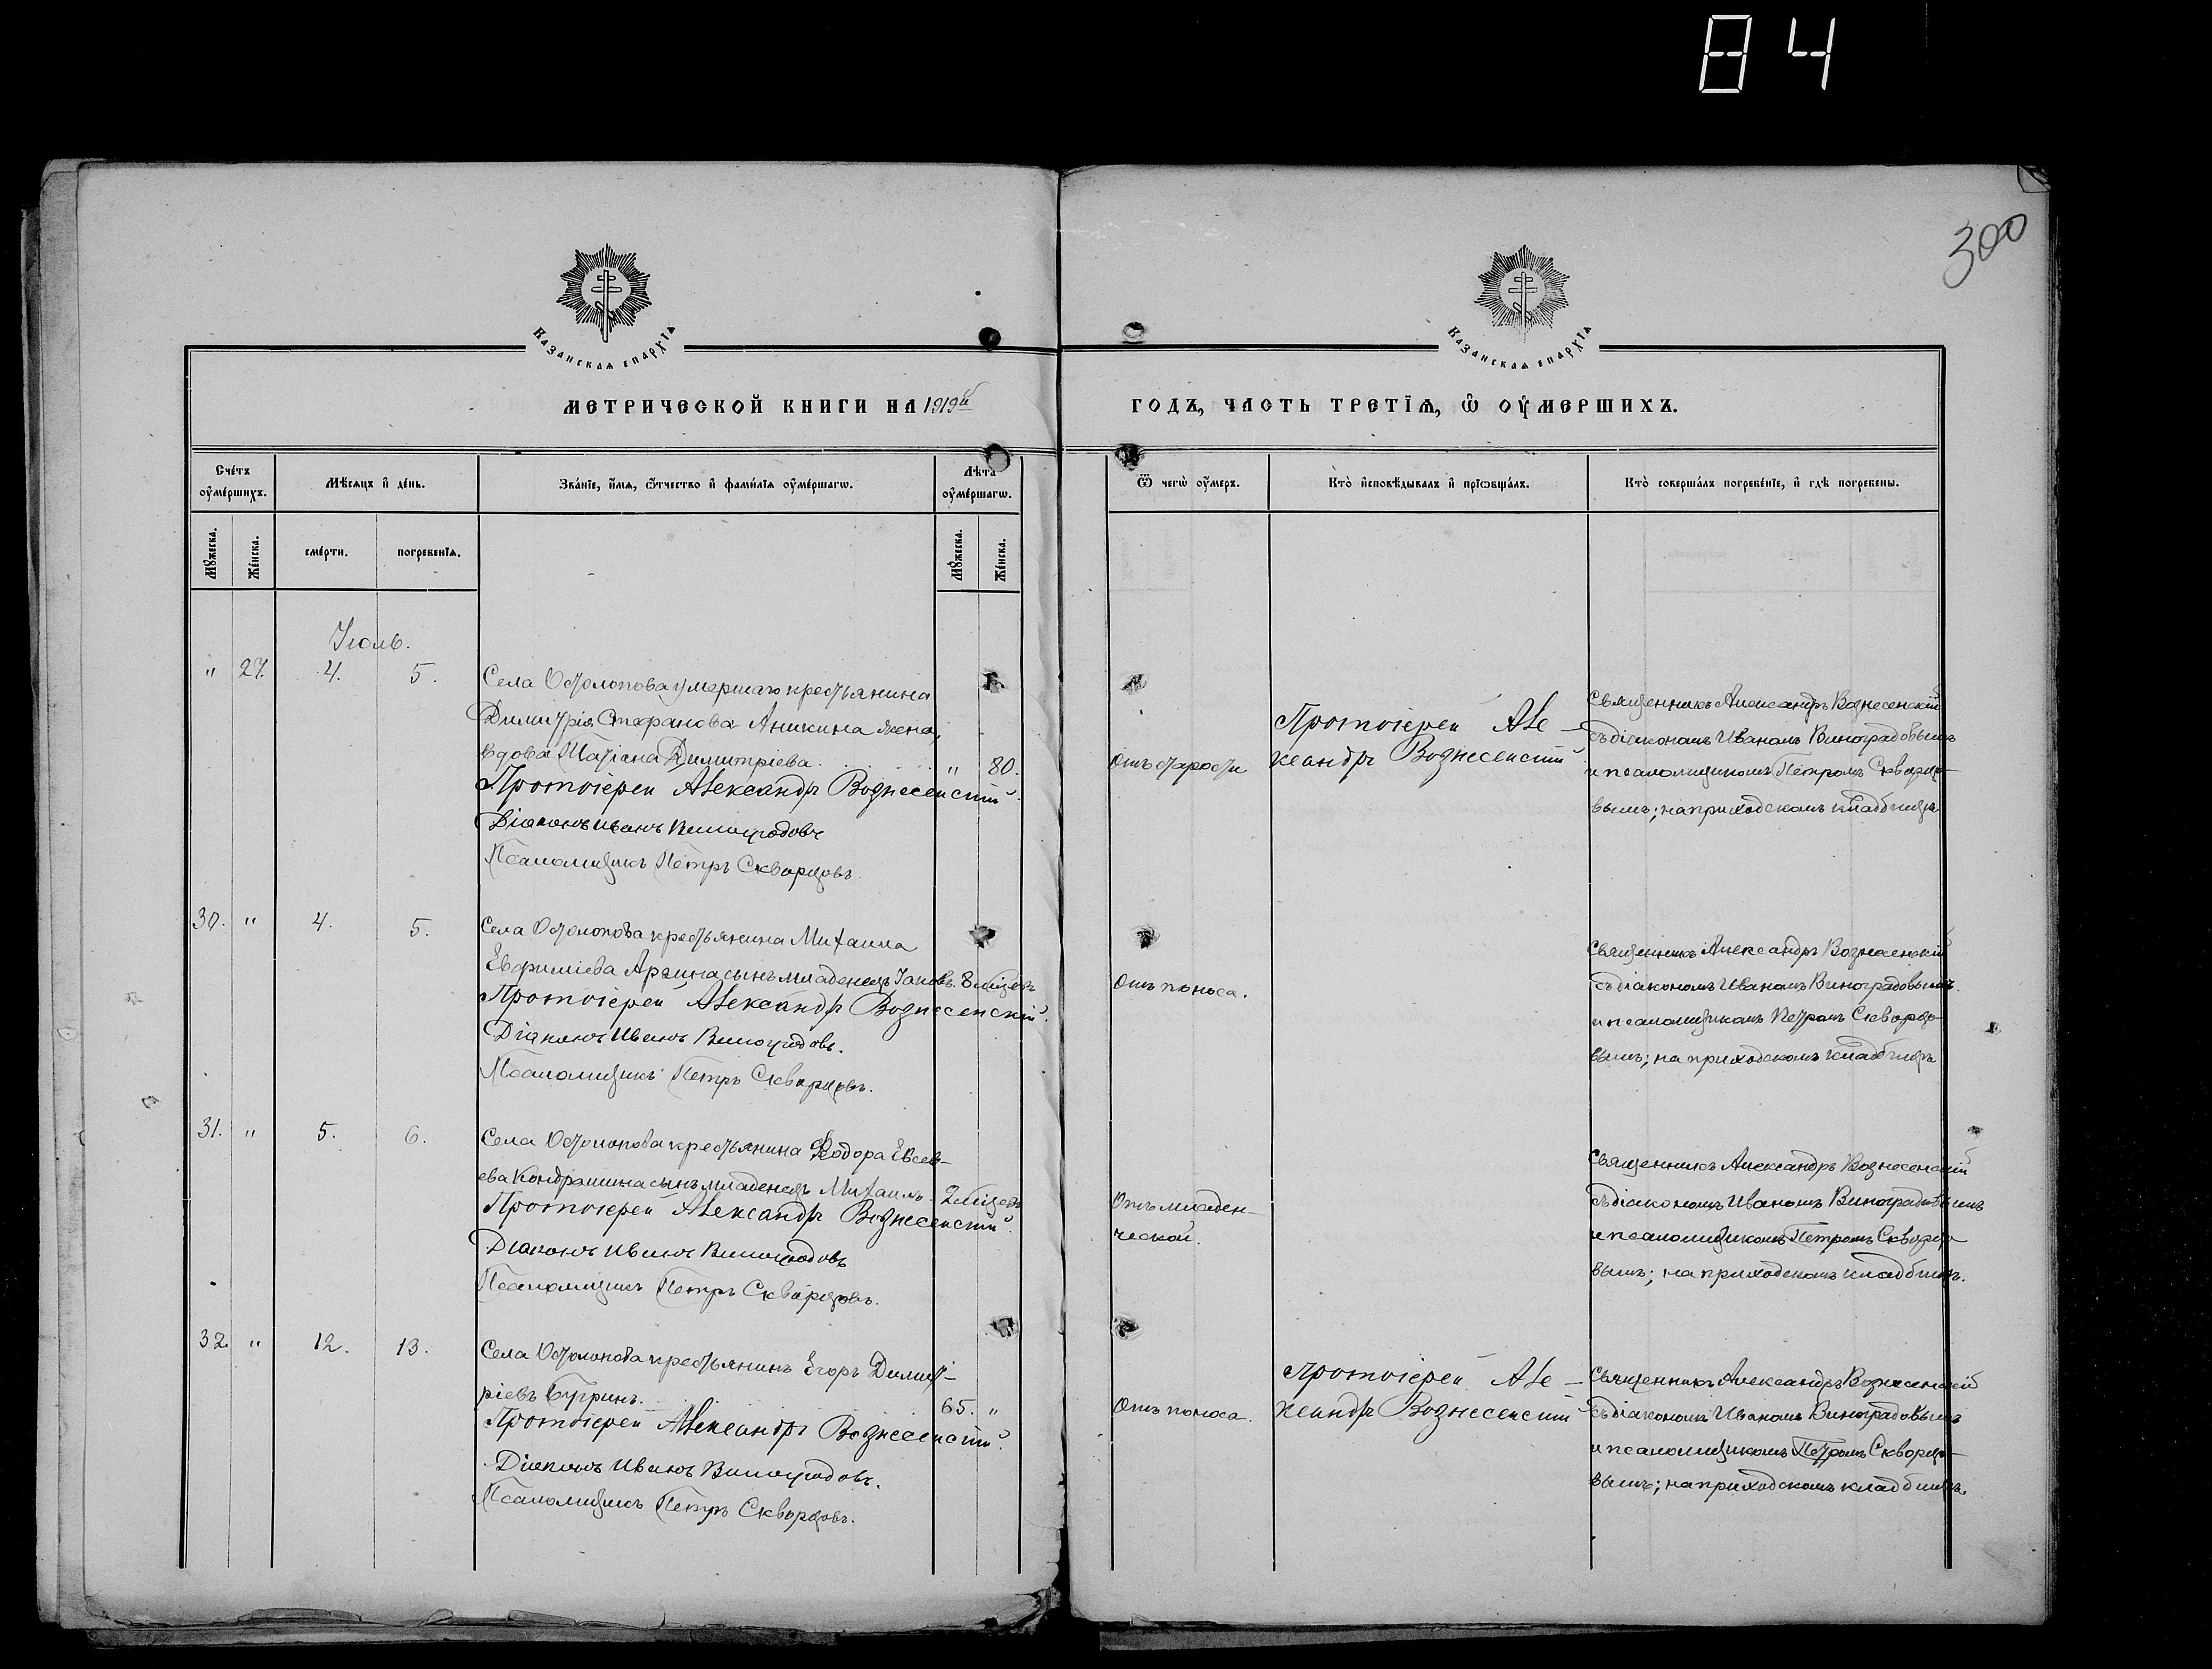 84
300
КАЗАНСКАѦ ЕПАРХІѦ
КАЗАНСКАѦ ЕПАРХІѦ
МЕТРИЧЕСКОЙ КНИГИ НА 1919й ГОДЪ, ЧАСТЬ ТРЕТІѦ, Ѡ ОУМЕРШИХЪ.
Счетъ оумершихъ.
Мѣсяцъ и день.
Званіе, имя, отчество и фамилія оумершагѡ.
Лѣта оумершагѡ.
Ѿ чегѡ оумеръ.
Кто исповѣдывалъ и пріѡбщалъ.
Кто совершалъ погребеніе, и гдѣ погребены.
Мужеска.
Женска.
смерти.
погребенія.
Мужеска.
Женска.
Іюль.
" 27. 4. 5.
Села Остолопова умершаго крестьянина
Димитрія Стефанова Аникина жена,
вдова Татіана Димитріева. " 80.
Протоіерей Александръ Вознесенскій.
Діаконъ Иванъ Виноградовъ
Псаломщикъ Петръ Скворцовъ
Отъ старости
Протоіерей Але-
ксандръ Вознесенскій
Священникъ Александръ Вознесенскій
съ діакономъ Иваномъ Виноградовымъ
и псаломщикомъ Петромъ Скворцо-
вымъ; на приходскомъ кладбищѣ
30. " 4. 5.
Села Остолопова крестьянина Михаила
Евфиміева сынъ младенецъ Іаковъ. 8 мѣсцевъ
Протоіерей Александръ Вознесенскій.
Діаконъ Иванъ Виноградовъ.
Псаломщикъ Петръ Скворцовъ.
Отъ поноса.
Священникъ Александръ Вознесенскій
съ діакономъ Иваномъ Виноградовымъ
и псаломщикомъ Петромъ Скворцо-
вымъ; на приходскомъ кладбищѣ
31. " 5. 6.
Села Остолопова крестьянина Ѳеодора Евсев-
ева Кондрашина сынъ младенецъ Михаилъ. 2 мѣсцевъ
Протоіерей Александръ Вознесенскій.
Діаконъ Иванъ Виноградовъ
Псаломщикъ Петръ Скворцовъ.
Отъ младен-
ческой.
Священникъ Александръ Вознесенскій
съ діакономъ Иваномъ Виноградовымъ
и псаломщикомъ Петромъ Скворцо-
вымъ; на приходскомъ кладбищѣ.
32. " 12. 13.
Села Остолопова крестьянинъ Егоръ Димит-
ріевъ Бугринъ. 65. "
Протоіерей Александръ Вознесенскій.
Діаконъ Иванъ Виноградовъ.
Псаломщикъ Петръ Скворцовъ.
Отъ поноса.
Протоіерей Але-
ксандръ Вознесенскій
Священникъ Александръ Вознесенскій
съ діакономъ Иваномъ Виноградовымъ
и псаломщикомъ Петромъ Скворцо-
вымъ; на приходскомъ кладбищѣ.